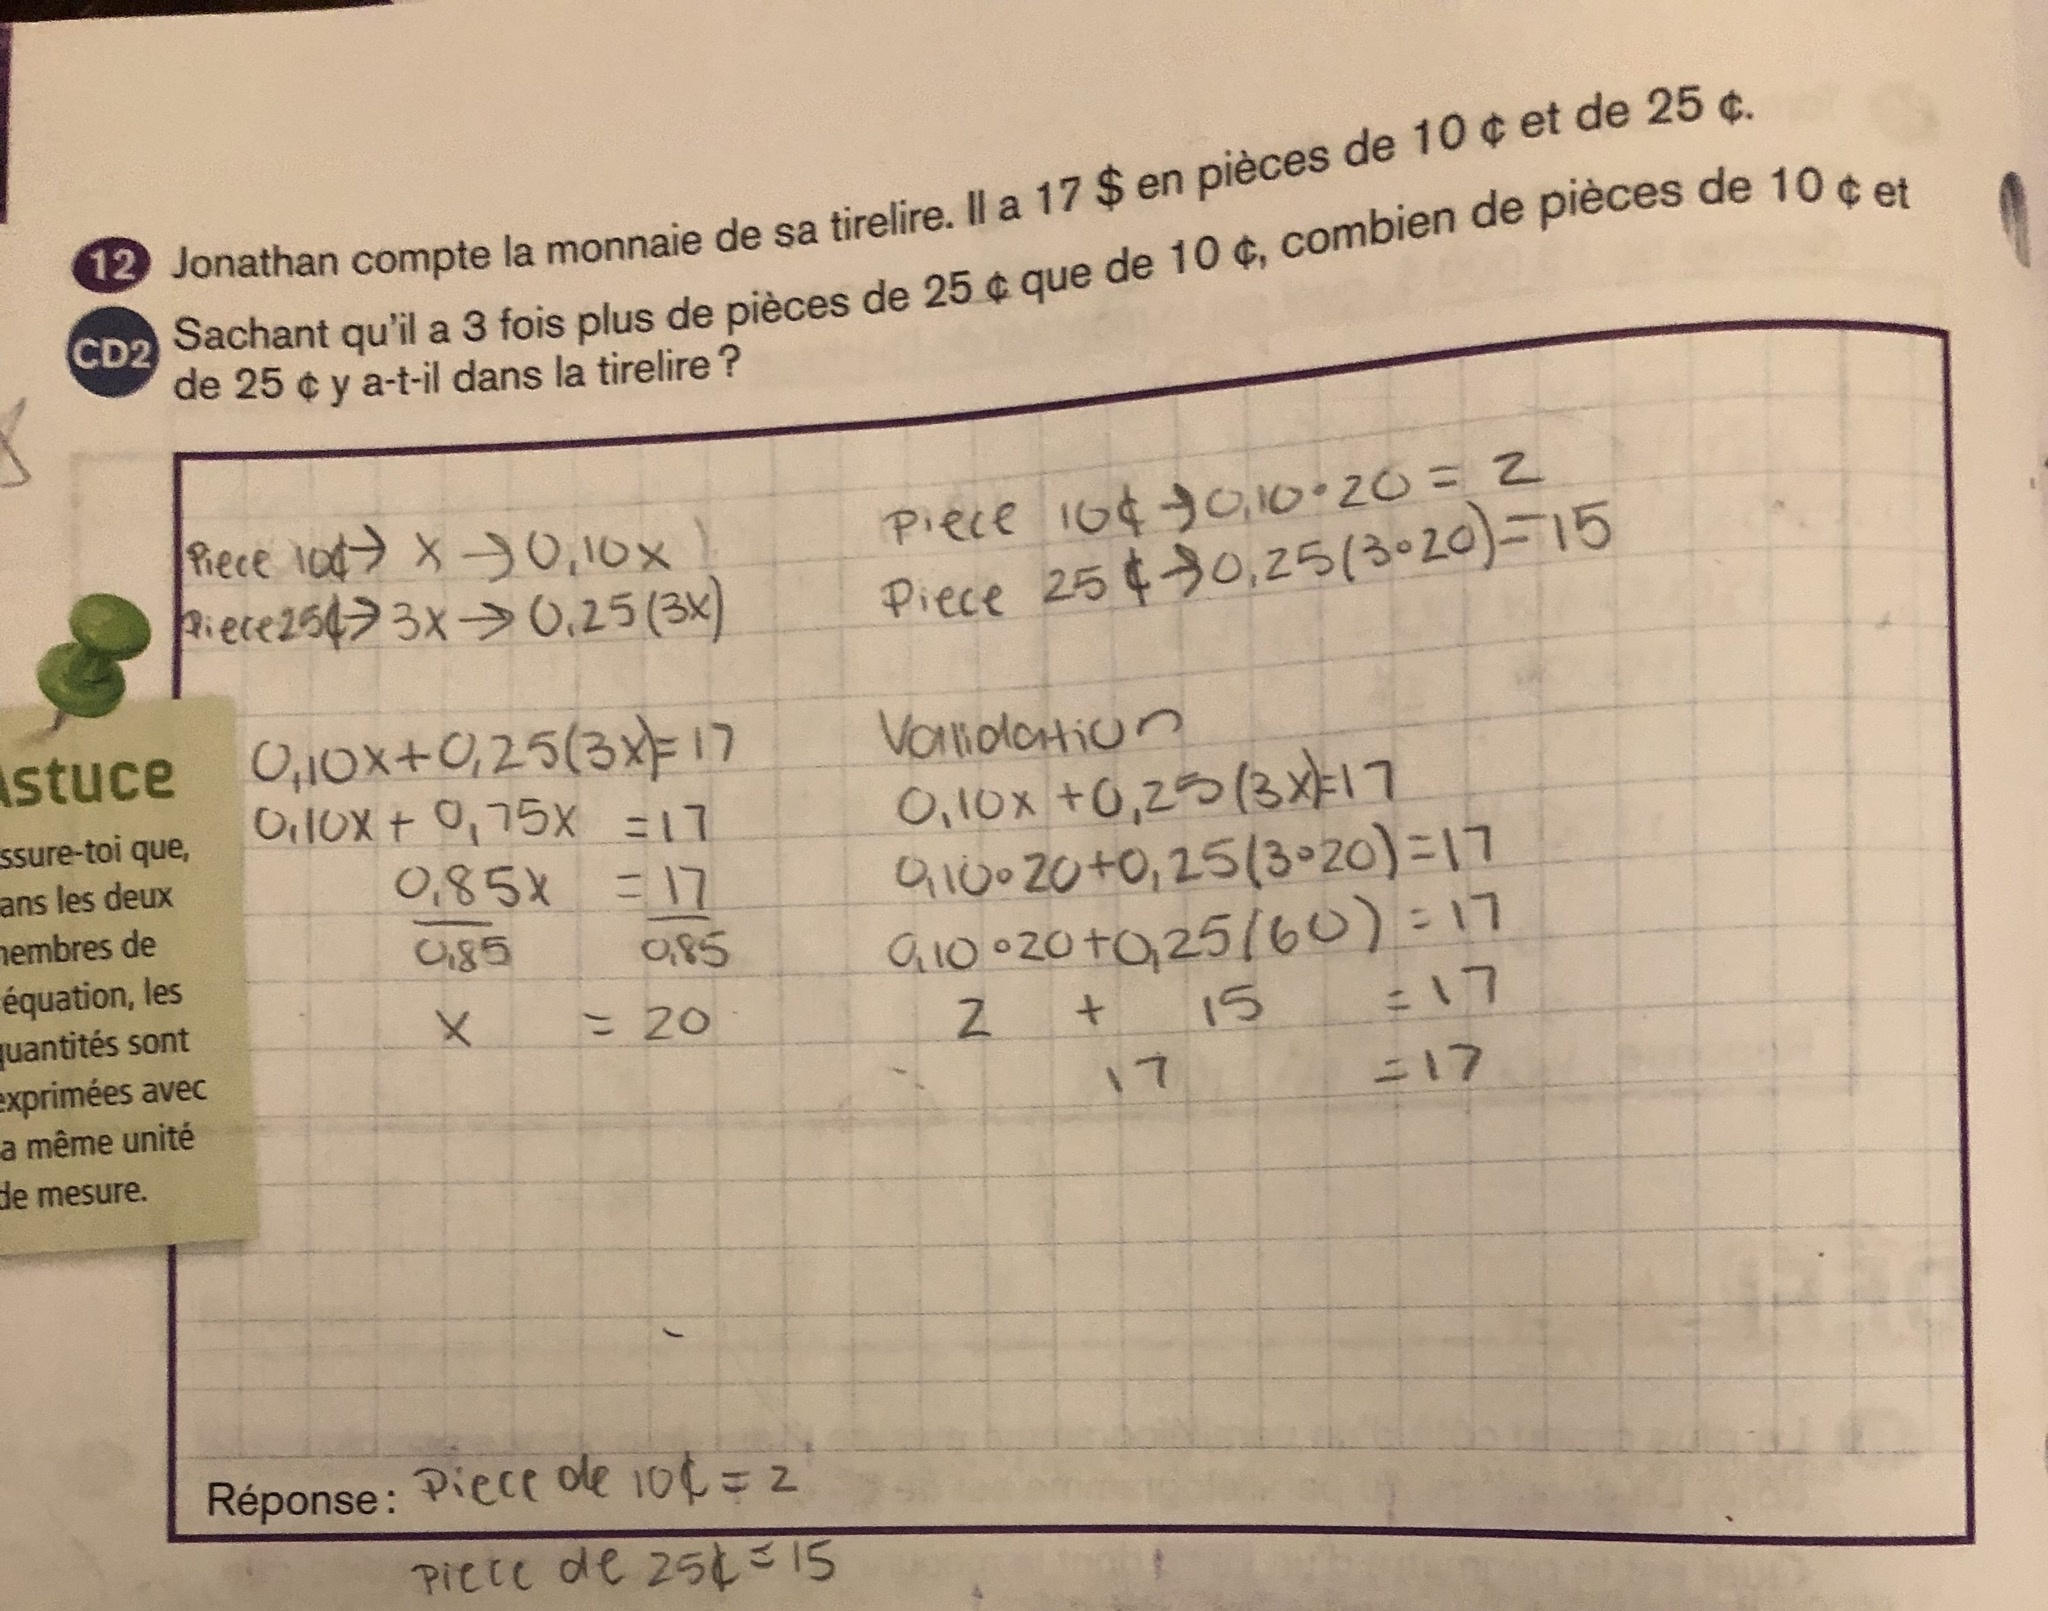 12 Jonathan compte la monnaie de sa tirelire. Il a 17 $ en pièces de 10 ¢ et de 25 ¢.
CD2 Sachant qu'il a 3 fois plus de pièces de 25 ¢ que de 10 ¢, combien de pièces de 10 ¢ et
de 25 ¢ y a-t-il dans la tirelire ?
Piece 10¢→ x → 0,10x
Piece 25¢→ 3x → 0,25(3x)
0,10x+0,25(3x)=17
0,10x+ 0,75x = 17
0,85x = 17
0,85 0,85
x = 20
Piece 10¢→0,10•20 = 2
Piece 25¢→0,25(3•20)=15
Validation
0,10x+0,25(3x)=17
0,10•20+0,25(3•20)=17
0,10•20+0,25(60) = 17
2 + 15 = 17
17 = 17
Astuce
ssure-toi que,
ans les deux
membres de
équation, les
quantités sont
exprimées avec
a même unité
de mesure.
Réponse : Piece de 10¢ = 2
Piece de 25¢ = 15